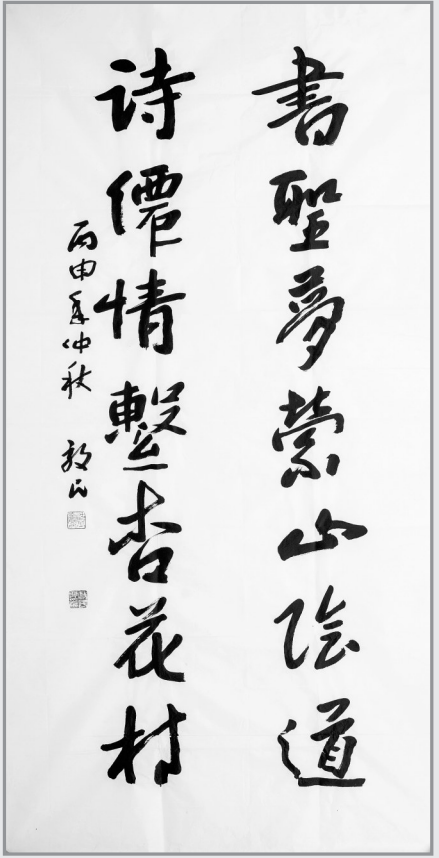 書聖夢縈山陰道
诗僊情繫杏花村
丙申年仲秋